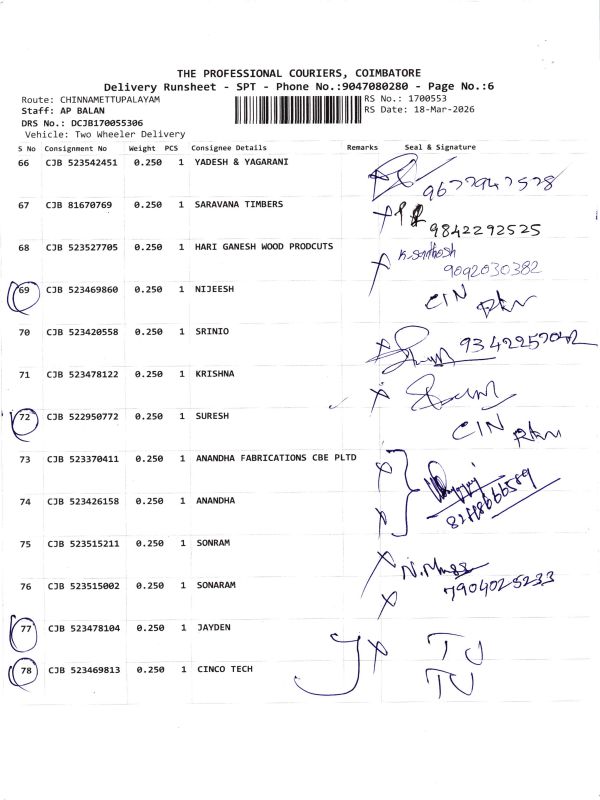 THE PROFESSIONAL COURIERS, COIMBATORE
Delivery Runsheet - SPT - Phone No.:9047080280 - Page No.:6
Route: CHINNAMETTUPALAYAM RS No.: 1700553
Staff: AP BALAN RS Date: 18-Mar-2026
DRS No.: DCJB170055306
Vehicle: Two Wheeler Delivery
S No Consignment No Weight PCS Consignee Details Remarks Seal & Signature
66 CJB 523542451 0.250 1 YADESH & YAGARANI
67 CJB 81670769 0.250 1 SARAVANA TIMBERS 9842292525
68 CJB 523527705 0.250 1 HARI GANESH WOOD PRODCUTS K. Santhosh
9092030382
69 CJB 523469860 0.250 1 NIJEESH CIN
70 CJB 523420558 0.250 1 SRINIO
71 CJB 523478122 0.250 1 KRISHNA
72 CJB 522950772 0.250 1 SURESH CIN
73 CJB 523370411 0.250 1 ANANDHA FABRICATIONS CBE PLTD
74 CJB 523426158 0.250 1 ANANDHA
75 CJB 523515211 0.250 1 SONRAM
76 CJB 523515002 0.250 1 SONARAM 7904025233
77 CJB 523478104 0.250 1 JAYDEN TJ
78 CJB 523469813 0.250 1 CINCO TECH TJ